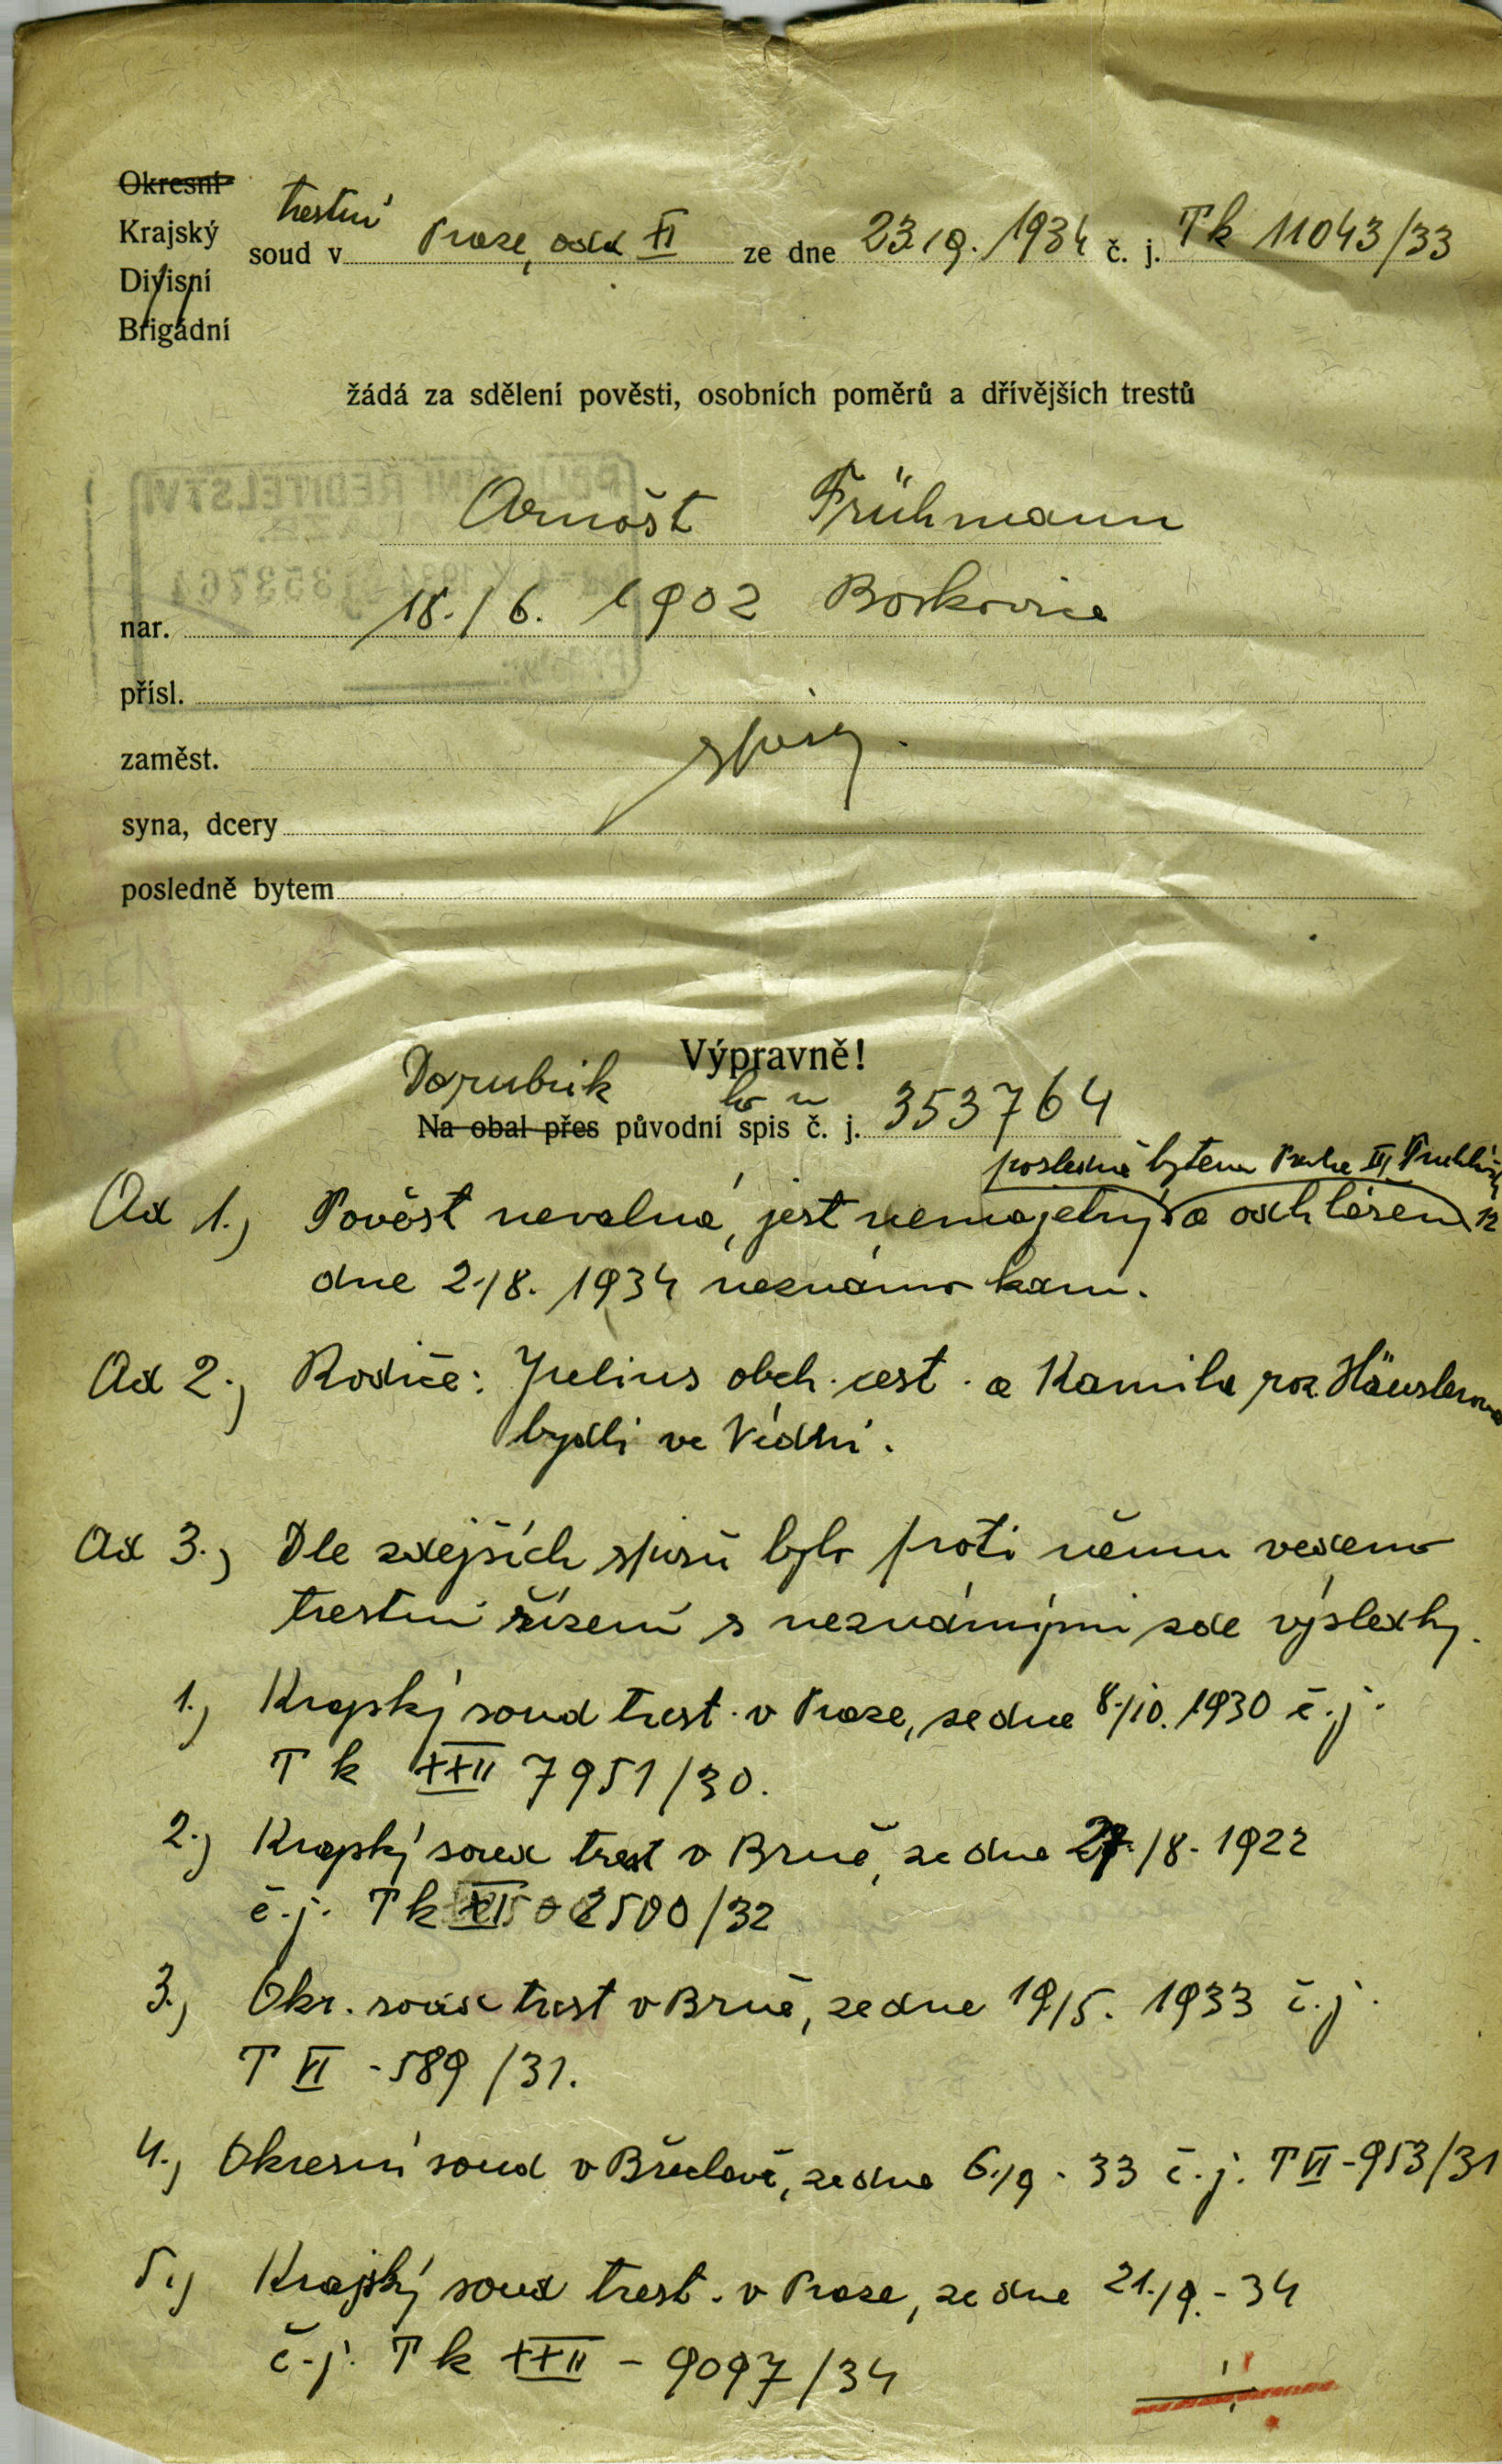 Okresní
Krajský
Divisní
Brigádní
trestní
soud v Praze, odd XI ze dne 23./9. 1934 č. j. Tk 11043/33
žádá za sdělení pověsti, osobních poměrů a dřívějších trestů
POLICEJNÍ ŘEDITELSTVÍ
353764
Arnošt Frühmann
nar. 18./6. 1902 Boskovice
přísl.
spisy.
zaměst.
syna, dcery
posledně bytem
Výpravně!
Do rubrik
Na obal přes původní spis č. j. 353764
posledně bytem Praha III
Ad 1.) Pověst nevalná, jest nemajetný a odhlášen 12
dne 2./8. 1934 neznámo kam.
Ad 2.) Rodiče: Julius obch. cest. a Kamila roz. Häuslerova
bydlí ve Vídni.
Ad 3.) Dle zdejších spisů bylo proti němu vedeno
trestní řízení s neznámými zde výsledky.
1.) Krajský soud trest. v Praze, ze dne 8./10. 1930 č. j.
Tk XXII 7951/30.
2.) Krajský soud trest v Brně, ze dne 27./8. 1922
č. j. Tk XI 2500/32
3.) Okr. soud trest v Brně, ze dne 19/5. 1933 č. j.
T VI - 589/31.
4.) Okresní soud v Břeclavě, ze dne 6./9. 33 č. j. T VI - 953/31
5.) Krajský soud trest. v Praze, ze dne 21./9. - 34
č. j. Tk XXII - 9097/34